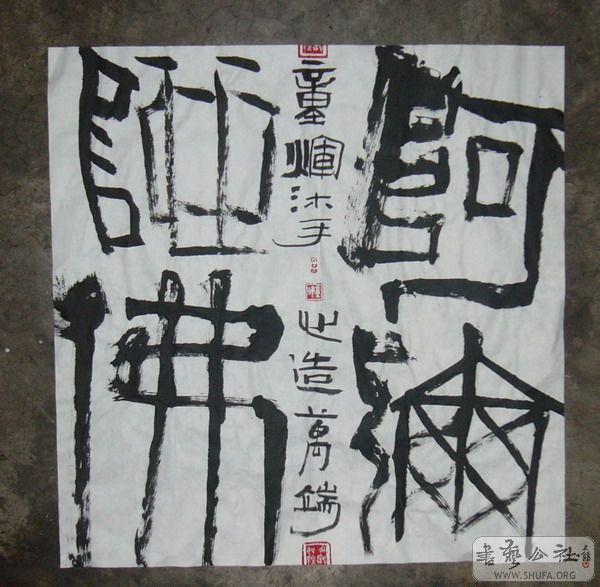 阿彌
陀佛
心造萬端
童煇沐手
書藝公社
WWW.SHUFA.ORG